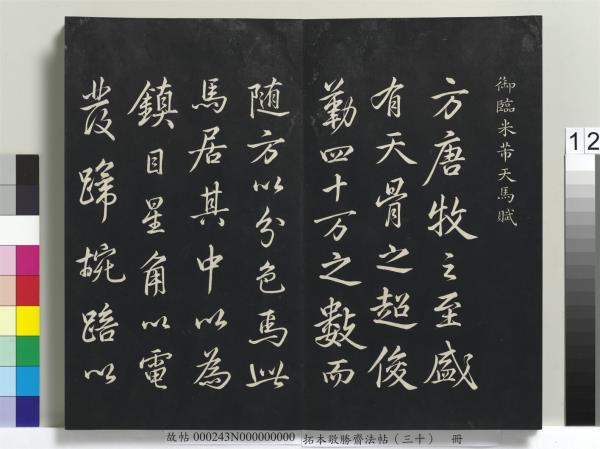 御臨米芾天馬賦
方唐牧之至盛
有天骨之超俊
勒四十万之數而
随方以分色焉此
馬居其中以為
鎮目星角以電
發蹄椀踣以
12
故帖 000243N000000000 拓本敬勝齋法帖（三十） 冊